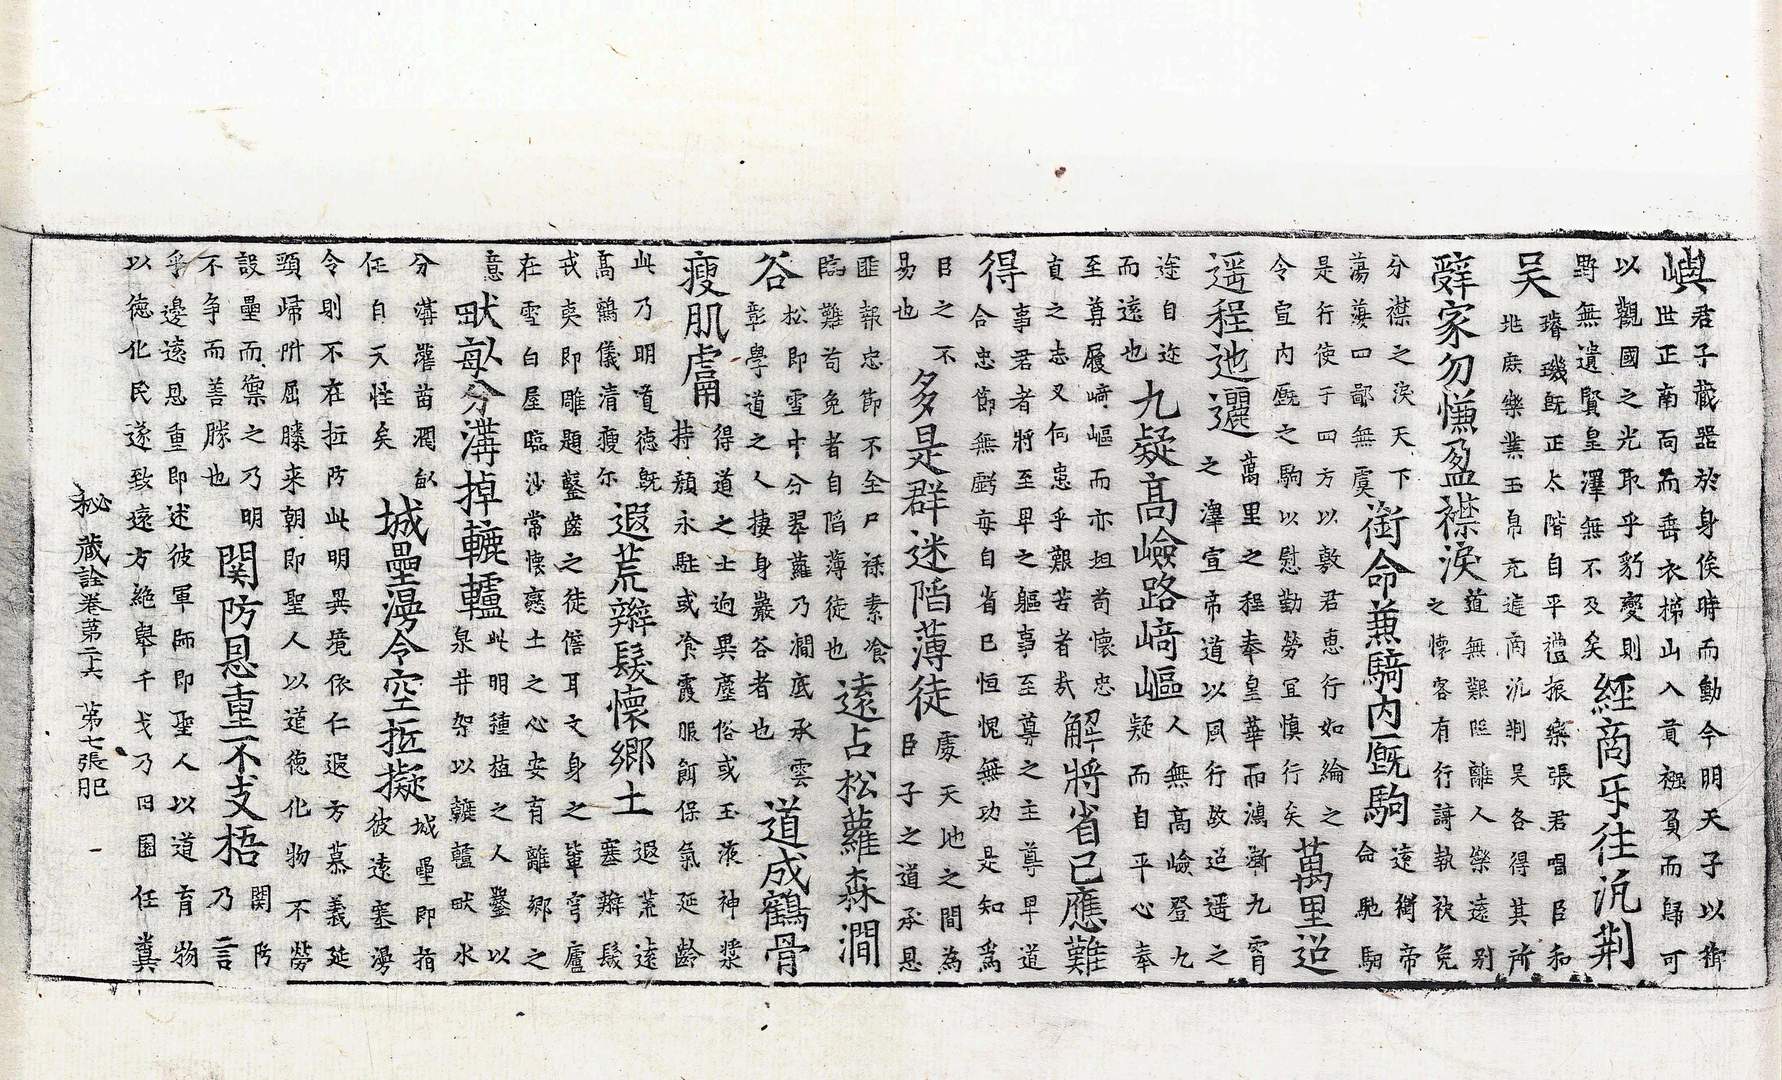 嶼君子藏器於身俟時而動今明天子以衛世正南面而垂衣梯山入貢襁負而歸可
以觀國之光取乎豹變則野無遺賢皇澤無不及矣經商乐往沅荆
吴璿璣既正太階自平禮振樂張君唱臣和地廣樂業玉帛充進商沅荆吴各得其所
辭家勿慊盈襟淚道無艱阻離人樂遠别之懷客有行謌執袂免
分襟之淚天下蕩蕩四鄙無虞銜命兼騎内厩駒遠衛帝命馳駒
是行使于四方以敷君惠行如綸之令宣内厩之駒以慰勤勞冝慎行矣萬里迢
遥程迆邐萬里之程奉皇華而鴻漸九霄之澤宣帝道以風行故迢遥之
途自迩而遠也九疑髙嶮路﨑嶇人無髙嶮登九疑而自平心奉
至尊履﨑嶇而亦坦苟懷忠貞之志又何患乎艱苦者㢤解將省己應難
得事君者將至卑之軀事至尊之主尊卑道合忠節無虧每自省己恒愧無功是知爲
臣之不易也多是群迷䧟薄徒處天地之間為臣子之道承恩
匪報忠節不全尸祿素飡臨難苟免者自䧟薄徒也遠占松蘿森澗
谷松即雪中分翠蘿乃澗底承雲彰學道之人棲身巖谷者也道成鶴骨
瘦肌膚得道之士逈異塵俗或玉液神漿持頽永駐或飡霞服餌保氣延齡
此乃明道德旣髙鶴儀清瘦尓遐荒辮髮懷鄉土遐荒遠塞辮髮
戎夷即雕題鑿齒之徒儋耳文身之軰穹廬在雪白屋臨沙常懷戀土之心安有離鄉之
意畎畝分溝掉轆轤此明種植之人鑿以泉井架以轆轤畎水
分溝灌苗潤畝任自天性矣城壘漫令空拒擬城壘即指彼遠塞漫
令則不在拒防此明異境依仁遐方慕義延頸歸附屈膝来朝即聖人以道德化物不勞
設壘而禦之乃明不争而善勝也関防恩重不支梧関防乃言
乎邊遠恩重即述彼軍師即聖人以道育物以德化民遂致遠方絶舉千戈乃曰圉任冀
秘藏詮卷第二十六 第七張肥 一